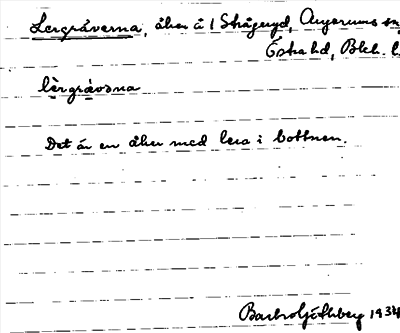 Lergråverna, åker å 1 Strågeryd, Augerums sn,
Östra hd, Blek. l.
lèrgrávəna
Det är en åker med lera i bottnen.
Barbro Göthberg 1934